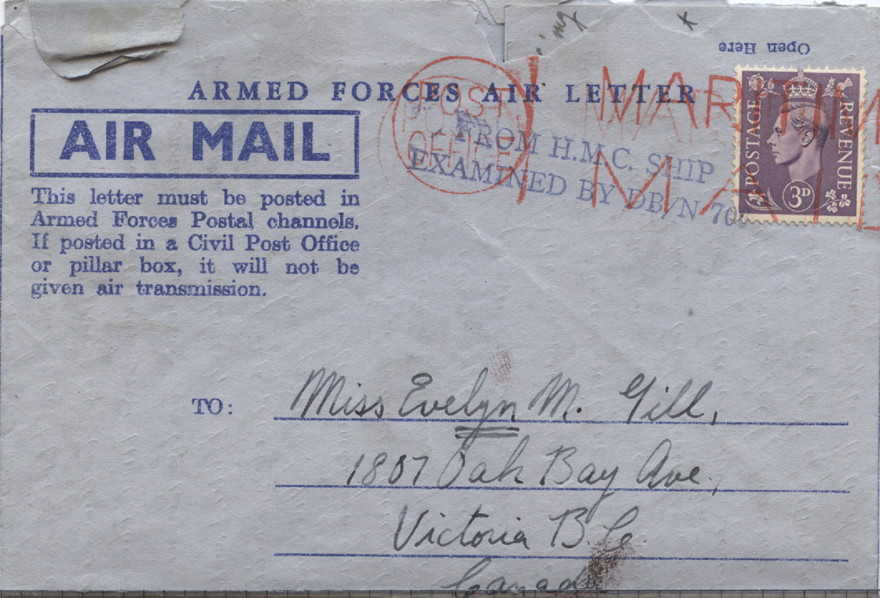 Open Here
ARMED FORCES AIR LETTER
AIR MAIL
This letter must be posted in
Armed Forces Postal channels.
If posted in a Civil Post Office
or pillar box, it will not be
given air transmission.
POST
OFFICE
MARITIME
MAIL
FROM H.M.C. SHIP
EXAMINED BY DB/N
POSTAGE
REVENUE
3D
TO: Miss Evelyn M. Gill,
1807 Oak Bay Ave.,
Victoria B.C.
Canada